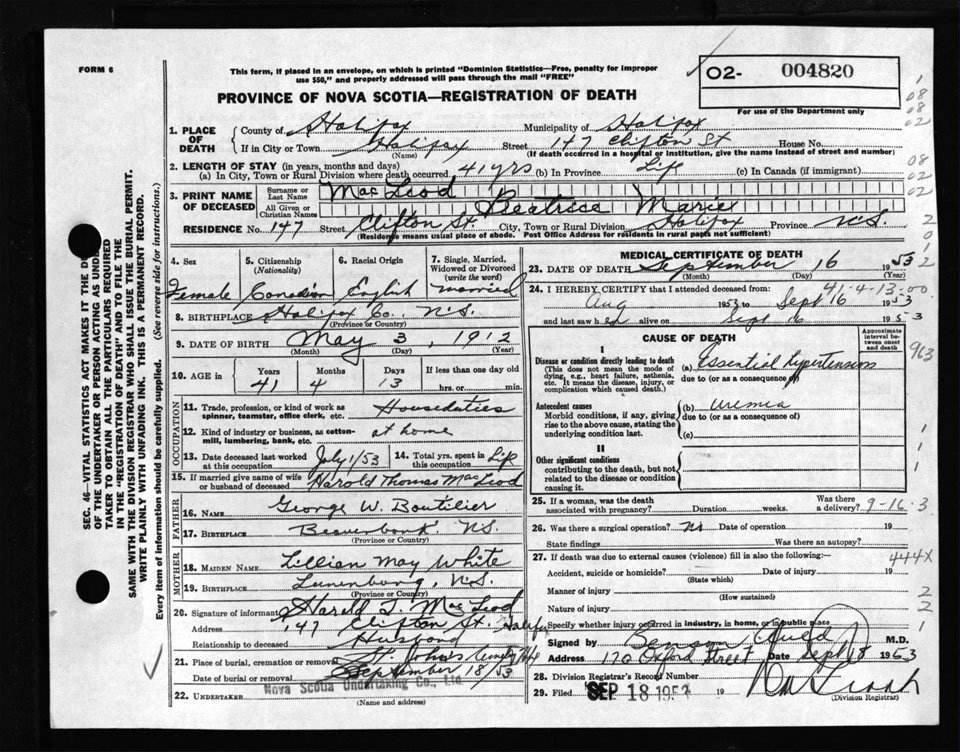 FORM 6
This form, if placed in an envelope, on which is printed "Dominion Statistics—Free, penalty for improper
use $50," and properly addressed will pass through the mail "FREE"
O2- 004820
For use of the Department only
PROVINCE OF NOVA SCOTIA—REGISTRATION OF DEATH
1. PLACE OF DEATH
County of Halifax Municipality of Halifax
If in City or Town Halifax Street 147 Clifton St House No.
(Name) (If death occurred in a hospital or institution, give the name instead of street and number)
2. LENGTH OF STAY (in years, months and days)
(a) In City, Town or Rural Division where death occurred 41 yrs (b) In Province Life (c) In Canada (if immigrant)
3. PRINT NAME OF DECEASED
Surname or Last Name MacLeod
All Given or Christian Names Beatrice Marie
RESIDENCE No. 147 Street Clifton St. City, Town or Rural Division Halifax Province N.S.
(Residence means usual place of abode. Post Office Address for residents in rural parts not sufficient)
4. Sex 5. Citizenship (Nationality) 6. Racial Origin 7. Single, Married, Widowed or Divorced (write the word)
Female Canadian English married
8. BIRTHPLACE Halifax Co. N.S.
(Province or Country)
9. DATE OF BIRTH May 3, 1912
(Month) (Day) (Year)
10. AGE in Years Months Days If less than one day old
41 4 13 hrs. or min.
OCCUPATION
11. Trade, profession, or kind of work as spinner, teamster, office clerk, etc. Houseduties
12. Kind of industry or business, as cotton-mill, lumbering, bank, etc. at home
13. Date deceased last worked at this occupation July 1/53 14. Total yrs. spent in this occupation Life
15. If married give name of wife or husband of deceased Harold Thomas MacLeod
FATHER
16. NAME George W. Boutilier
17. BIRTHPLACE Beaverbank N.S.
(Province or Country)
MOTHER
18. MAIDEN NAME Lillian May White
19. BIRTHPLACE Lunenburg, N.S.
(Province or Country)
20. Signature of informant Harold T. MacLeod
Address 147 Clifton St. Halifax
Relationship to deceased Husband
21. Place of burial, cremation or removal St. Johns
Date of burial or removal September 18/53
22. UNDERTAKER Nova Scotia Undertaking Co., Ltd.
(Name and address)
MEDICAL CERTIFICATE OF DEATH
23. DATE OF DEATH September 16 1953
(Month) (Day) (Year)
41-4-13-00
24. I HEREBY CERTIFY that I attended deceased from
Aug 1953 to Sept 16 1953
and last saw her alive on Sept 16 1953
CAUSE OF DEATH
Approximate interval between onset and death
I
Disease or condition directly leading to death (a) Essential hypertension
(This does not mean the mode of dying, e.g., heart failure, asthenia, etc. It means the disease, injury, or complication which caused death.)
due to (or as a consequence of)
Antecedent causes (b) uremia
Morbid conditions, if any, giving rise to the above cause, stating the underlying condition last.
due to (or as a consequence of)
(c)
II
Other significant conditions
contributing to the death, but not related to the disease or condition causing it.
25. If a woman, was the death associated with pregnancy? Duration weeks. Was there a delivery? 9-16-3
26. Was there a surgical operation? No Date of operation 19
State findings Was there an autopsy?
27. If death was due to external causes (violence) fill in also the following:— 444X
Accident, suicide or homicide? Date of injury 19
(State which)
Manner of injury
(How sustained)
Nature of injury
Specify whether injury occurred in industry, in home, or in public place
Signed by Benson Auld M.D.
Address 170 Oxford Street Date Sept 18 1953
28. Division Registrar's Record Number
29. Filed SEP 18 1953 19
(Division Registrar)
SEC. 46—VITAL STATISTICS ACT MAKES IT THE
OF THE UNDERTAKER OR PERSON ACTING AS UNDER-
TAKER TO OBTAIN ALL THE PARTICULARS REQUIRED
IN THE "REGISTRATION OF DEATH" AND TO FILE THE
SAME WITH THE DIVISION REGISTRAR WHO SHALL ISSUE THE BURIAL PERMIT.
WRITE PLAINLY WITH UNFADING INK. THIS IS A PERMANENT RECORD.
Every item of information should be carefully supplied. (See reverse side for instructions.)
1
08
08
02
08
02
02
2
0
1
2
963
1
1
1
2
2
1